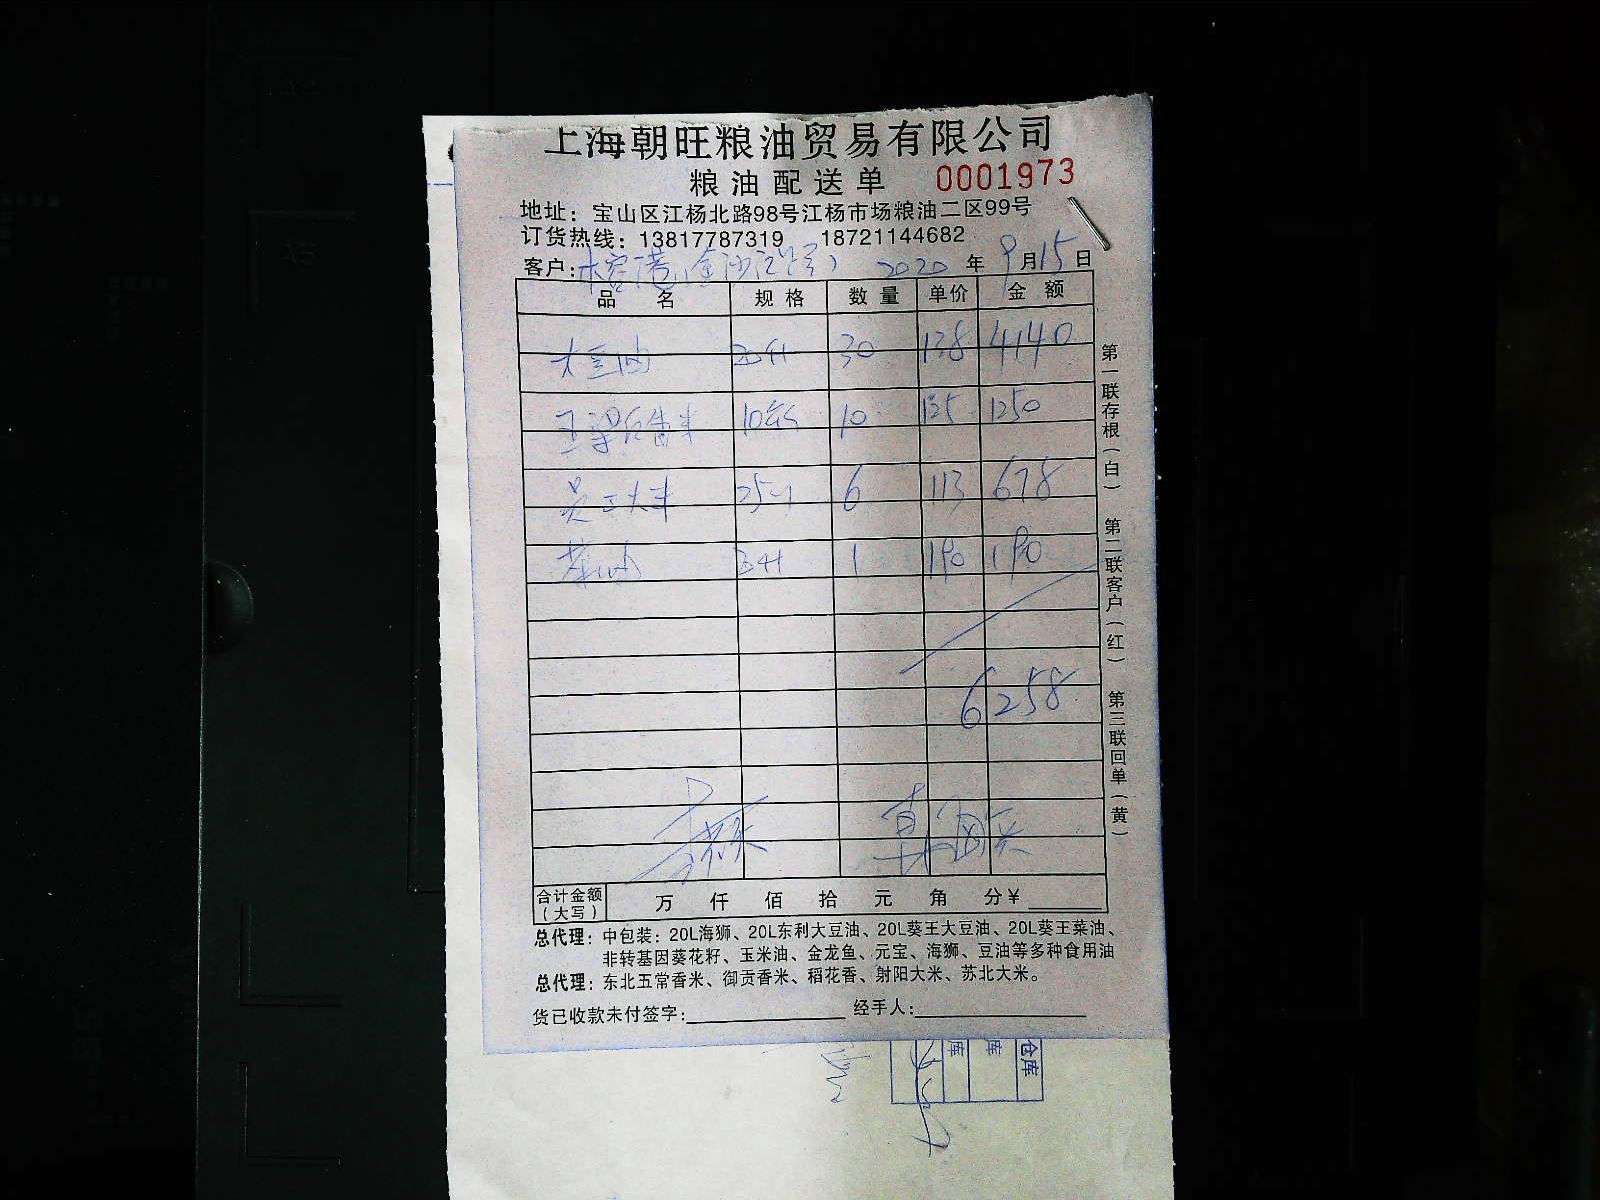 上海朝旺粮油贸易有限公司
粮油配送单 0001973
地址：宝山区江杨北路98号江杨市场粮油二区99号
订货热线：13817787319 18721144682
客户： 2020 年 9 月 15 日
品 名 规 格 数 量 单价 金 额
大豆油 30 138 4140
10 125 1250
大米 6 113 678
菜油 1 190 190
6258
合计金额（大写） 万 仟 佰 拾 元 角 分￥
总代理：中包装：20L海狮、20L东利大豆油、20L葵王大豆油、20L葵王菜油、
非转基因葵花籽、玉米油、金龙鱼、元宝、海狮、豆油等多种食用油
总代理：东北五常香米、御贡香米、稻花香、射阳大米、苏北大米。
货已收款未付签字： 经手人：
第一联存根（白） 第二联客户（红） 第三联回单（黄）
仓库
库
库